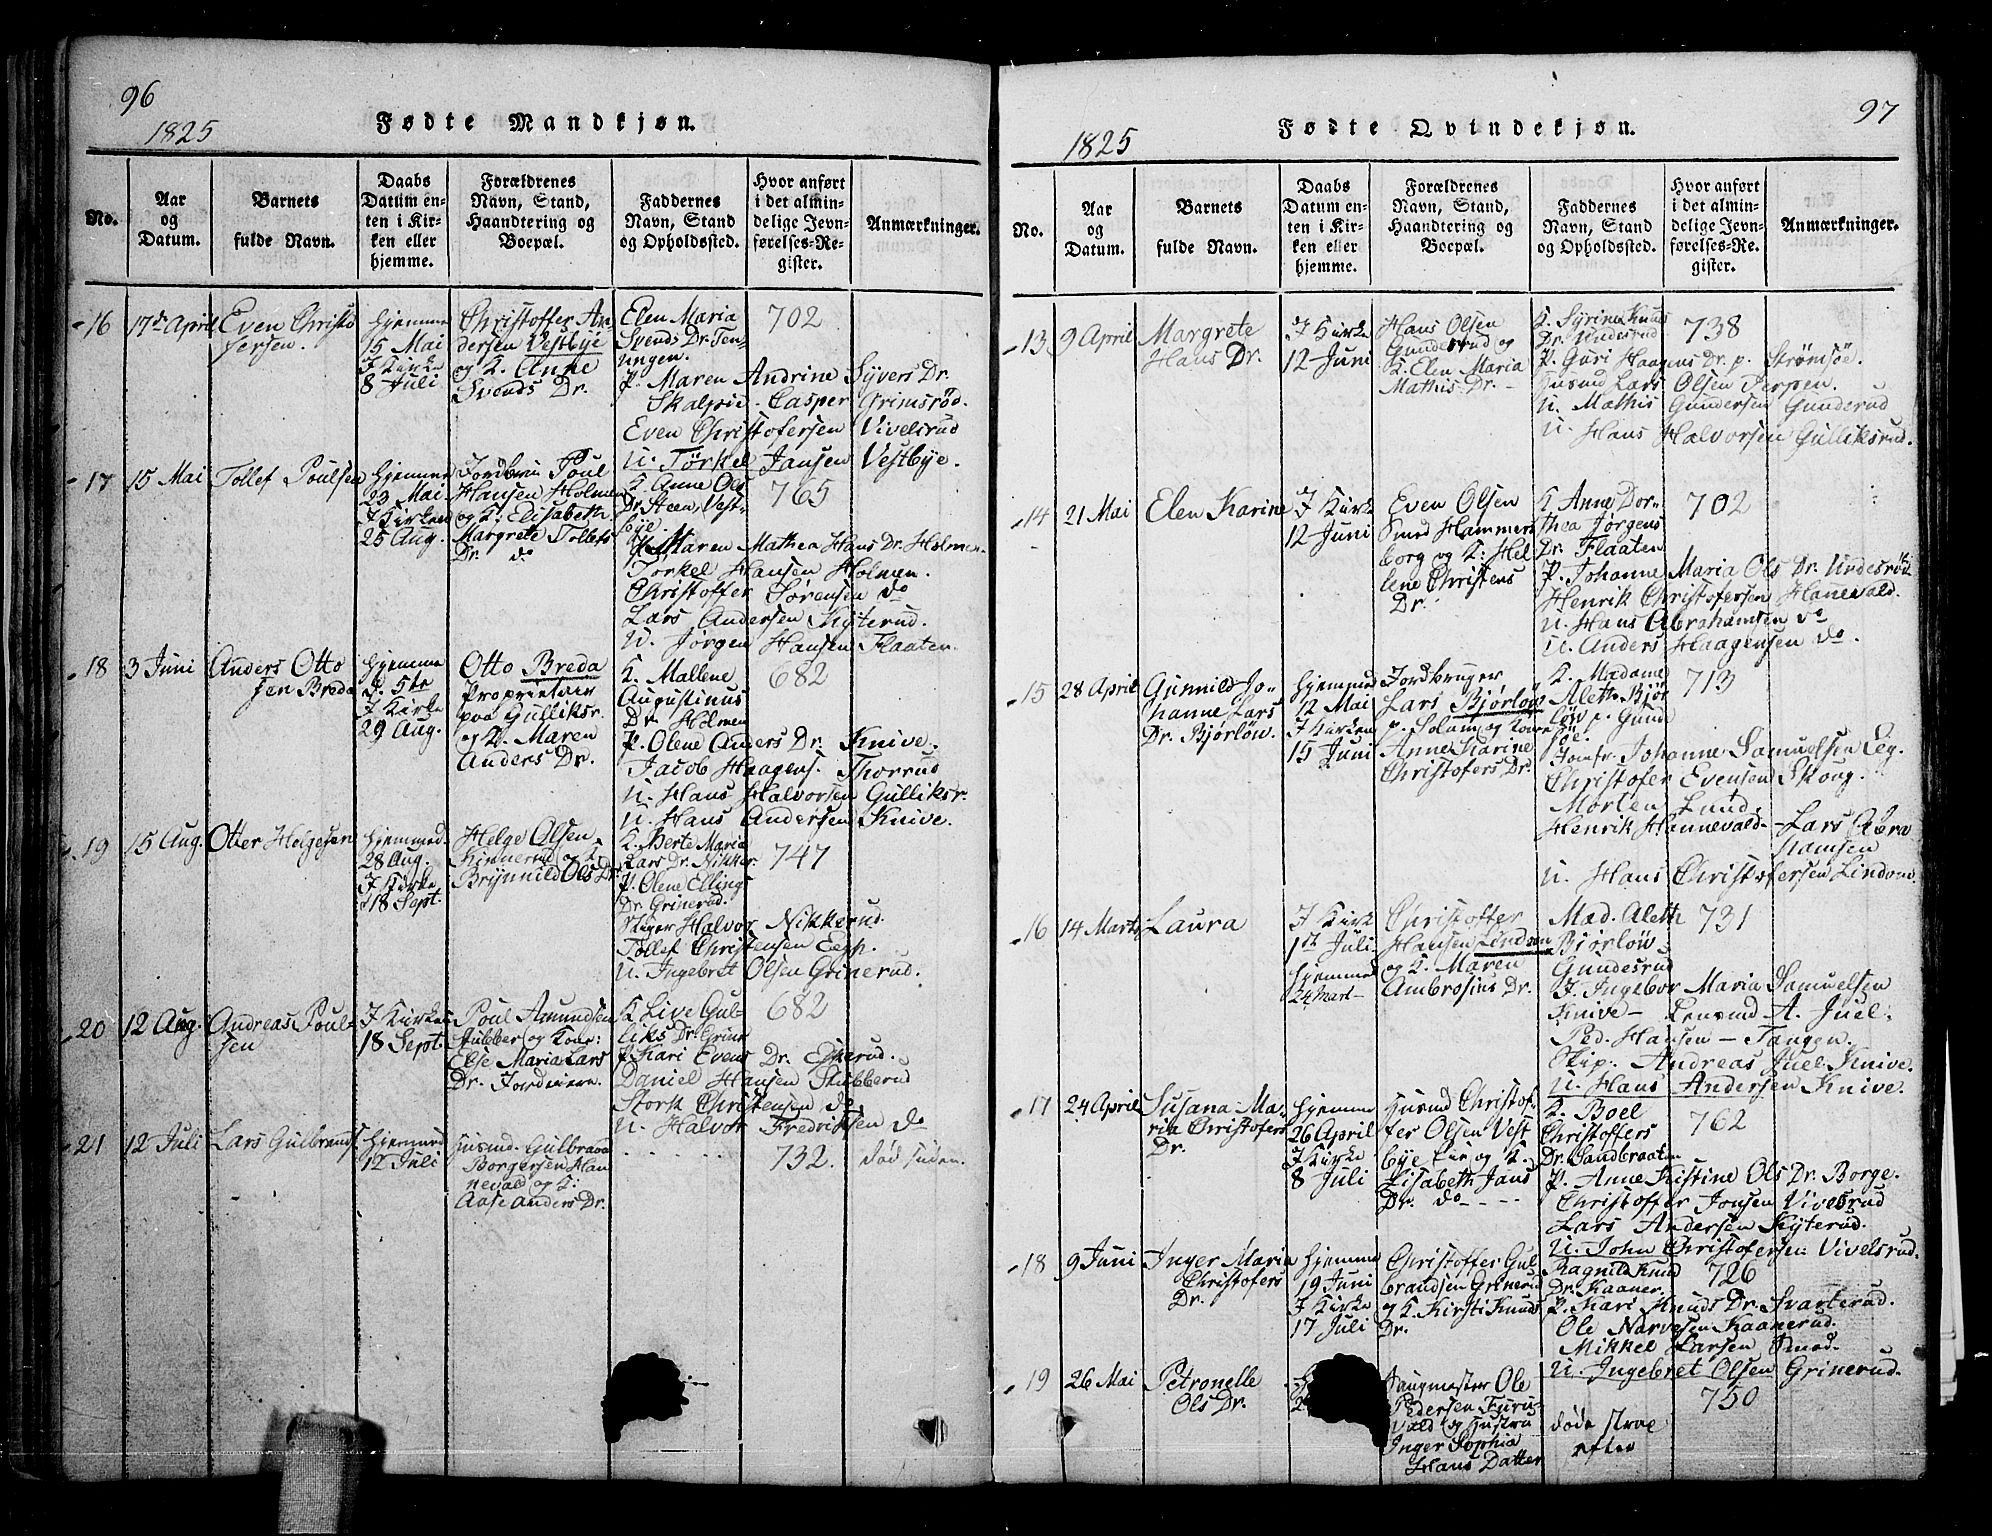 96
1825
Fødte Mandkjøn.
No.
Aar
og
Datum.
Barnets
fulde Navn.
Daabs
Datum en-
ten i Kir-
ken eller
hjemme.
Forældrenes
Navn, Stand,
Haandtering og
Boepæl.
Faddernes
Navn, Stand
og Opholdssted.
Hvor anført
i det almin-
delige Jevn-
førelses-Re-
gister.
Anmærkninger.
16
17de April
Even Christo
fersen.
hjemme
15 Mai
I Kirke
8 Juli
Christoffer An-
dersen Vestbye
og K. Anne
Svends Dr.
Elen Maria
Svends Dr. Ten-
ningen.
P. Maren Andrine Syvers Dr.
Skalpie. Casper Grimsrød.
Even Christofersen Vivelsrud
U. Törkel Jansen Vestbye.
702
17
15 Mai
Tollef Poulsen
hjemme
23 Mai
I Kirken
25 Aug.
Poul
Hansen Holmen
og K: Elisabeth
Margrete Tollefs
Dr. do
K. Anne Ols
Dr. Steen, Vest-
bye.
P. Maren Mathea Hans Dr. Holmen.
Torkel Hansen Holmen.
Christoffer Sørensen do
Lars Andersen Kyterud.
U. Jørgen Hansen Flaaten.
765
18
3 Juni
Anders Otto
sen Breda
hjemme
d. 5te
I Kirke
29 Aug.
Otto Breda
Proprietair
paa Gulliksr.
og K. Maren
Anders Dr.
K. Mallene
Augustinus
Dr. Holmen
P. Olene Anders Dr. Knive.
Jacob Haagens. Thorrud
U. Hans Halvorsen Gulliksr.
U. Hans Andersen Knive.
682
19
15 Aug.
Otter Helgesen
hjemmed
28 Aug.
I Kirke
18 Sept.
Helge Olsen
Kinnerud og K.
Brynnild Ols Dr.
K. Berte Maria
Lars Dr. Nikker.
P. Olene Ellings
Dr. Grinerud.
Halvor Nikkerud.
Tollef Christensen Eegh.
U. Ingebret Olsen Grinerud.
747
20
12 Aug.
Andreas Poul-
sen
I Kirken
18 Sept.
Poul Amundsen
Stubber og Kone:
Else Maria Lars
Dr. Jordeiere.
K Live Gul-
liks Dr. Grine
P. Kari Evens Dr. Eskerud.
Daniel Hansen Stubberud
Stork Christensen do
U. Halvor Fredriksen do
682
21
12 Juli
Lars Gulbrands.
hjemmed
12 Juli
Husmd. Gulbrand
Borgersen Han
nevald og K:
Aase Anders Dr.
732.
død siden.
97
1825
Fødte Qvindekjøn.
No.
Aar
og
Datum.
Barnets
fulde Navn.
Daabs
Datum en-
ten i Kir-
ken eller
hjemme.
Forældrenes
Navn, Stand,
Haandtering og
Boepæl.
Faddernes
Navn, Stand
og Opholdssted.
Hvor anført
i det almin-
delige Jevn-
førelses-Re-
gister.
Anmærkninger.
13
9 April
Margrete
Hans Dr.
I Kirke
12 Juni
Hans Olsen
Gunderud og
K. Elen Maria
Mathis Dr.
K. Syrine Knuds
Dr. Gunderud
P. Guri Haagens Dr. p. Strømsøe.
Husmd Lars Olsen Terpen.
U. Mathis Gundersen Gunderud
U. Hans Halvorsen Gulliksrud.
738
14
21 Mai
Elen Karine
I Kirk
12 Juni
Even Olsen
Smed Hammers
borg og K: Hel
lene Christens
Dr.
K Anne Dor-
thea Jørgens
Dr. Flaaten
P. Johanne Maria Ols Dr. Undesrød
Henrik Christofersen Hanevald.
U. Hans Abrahamsen do
U. Anders Haagensen do.
702
15
28 April
Gunnild Jo-
hanne Lars
Dr. Bjørløw
hjemmed
12 Mai
I Kirken
15 Juni
Jordbruger
Lars Bjørløw
p. Solum og Kone
Anne Karine
Christofers Dr.
K. Madame
Aleth Bjør
løw p. Gund
søe.
Jomfr. Johanne Samuelsen Eeg.
Christofer Evensen Skoug.
Morten Lund.
Henrik Hannevald - Lars Abra
hamsen
U. Hans Christofersen Lindone.
713
16
14 Marts
Laura
I Kirk
1st Juli
hjemmed
24 Mart
Christoffer
Hansen Lindøen
og K. Maren
Ambrosius Dr.
Mad. Aleth
Bjørløw
Gundesrud
J. Ingebor Maria Samuelsen
Knive - Lensmd A. Juel.
Ped. Hansen - Tangen.
Skip. Andreas Juel Knive.
U. Hans Andersen Knive.
731
17
24 April
Susana Ma-
ria Christofers
Dr.
hjemme
26 April
I Kirke
8 Juli
Husmd Christof-
fer Olsen Vest
bye Eie og K.
Lisabeth Jans
Dr. do
K. Boel
Christoffers
Dr. Sandbraaten
P. Anne Kistine Ols Dr. Borge.
Christoffer Jonsen Vivelsrud
Lars Andersen Kyterud.
U. John Christofersen Vivelsrud.
762
18
9 Juni
Inger Maria
Christofers
Dr.
hjemme
19 Juni
I Kirke
17 Juli
Christoffer Gul
brandsen Grinerud
og K. Kirsti Knuds
Dr.
Ragnild Knud
Dr. Kaaner.
P. Kari Knuds Dr. Svarterud.
Ole Narvesen Kaanerud.
Mikkel Larsen Smed.
U. Ingebret Olsen Grinerud.
726
19
26 Mai
Petronelle
Ols Dr.
Saugmester Ole
Pedersen Furu-
vald og Hustru
Inger Sophia
Hans Datter
døde strax
efter
750